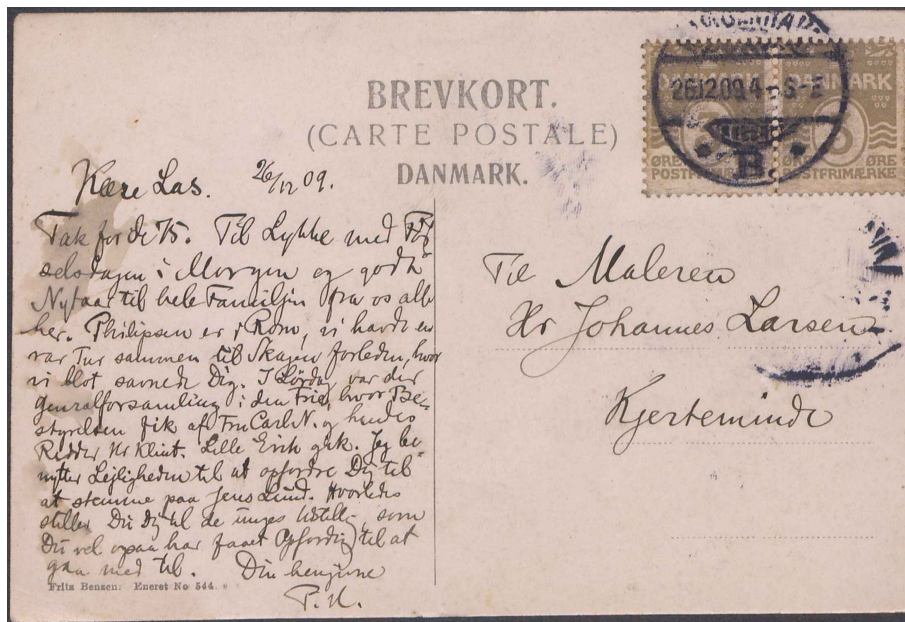 BREVKORT.
(CARTE POSTALE)
DANMARK.
26.12.09. 4-5 E
B
DANMARK DANMARK
5
ØRE ØRE ØRE
POSTFRIMÆRKE POSTFRIMÆRKE
Kære Las. 26/12 09.
Tak for de 75. Til Lykke med Fød
selsdagen i Morgen og godt
Nytaar til hele Familjen fra os alle
her. Philipsen er i Rom, vi havde en
rar Tur sammen til Skagen forleden, hvor
vi blot savnede Dig. I Lørdag var der
Generalforsamling i den Frie, hvor Be-
styrelsen fik af Fru Carl N. og hendes
Ridder Hr Klint. Lille Erik gik. Jeg be-
nytter Lejligheden til at opfordre Dig til
at stemme paa Jens Lund. Hvorledes
stiller Du Dig til de unges Udstill., som
Du vel ogsaa har faaet Opfordring til at
gaa med til. Din hengivne
P.H.
Fritz Bensen. Eneret No 544.
Til Maleren
Hr Johannes Larsen
Kjerteminde